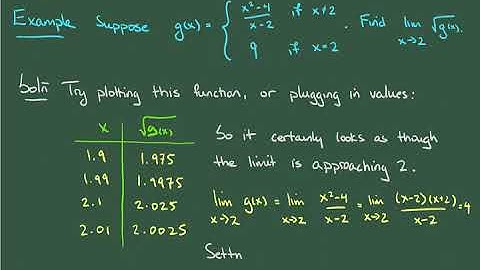 Example Suppose g(x) = { x²-4/x-2 , if x≠2 . Find lim x→2 √g(x).
9 , if x=2
Soln Try plotting this function, or plugging in values:
x √g(x)
1.9 1.975
1.99 1.9975
2.1 2.025
2.01 2.0025
So it certainly looks as though
the limit is approaching 2.
lim x→2 g(x) = lim x→2 x²-4/x-2 = lim x→2 (x-2)(x+2)/x-2 = 4
Settn